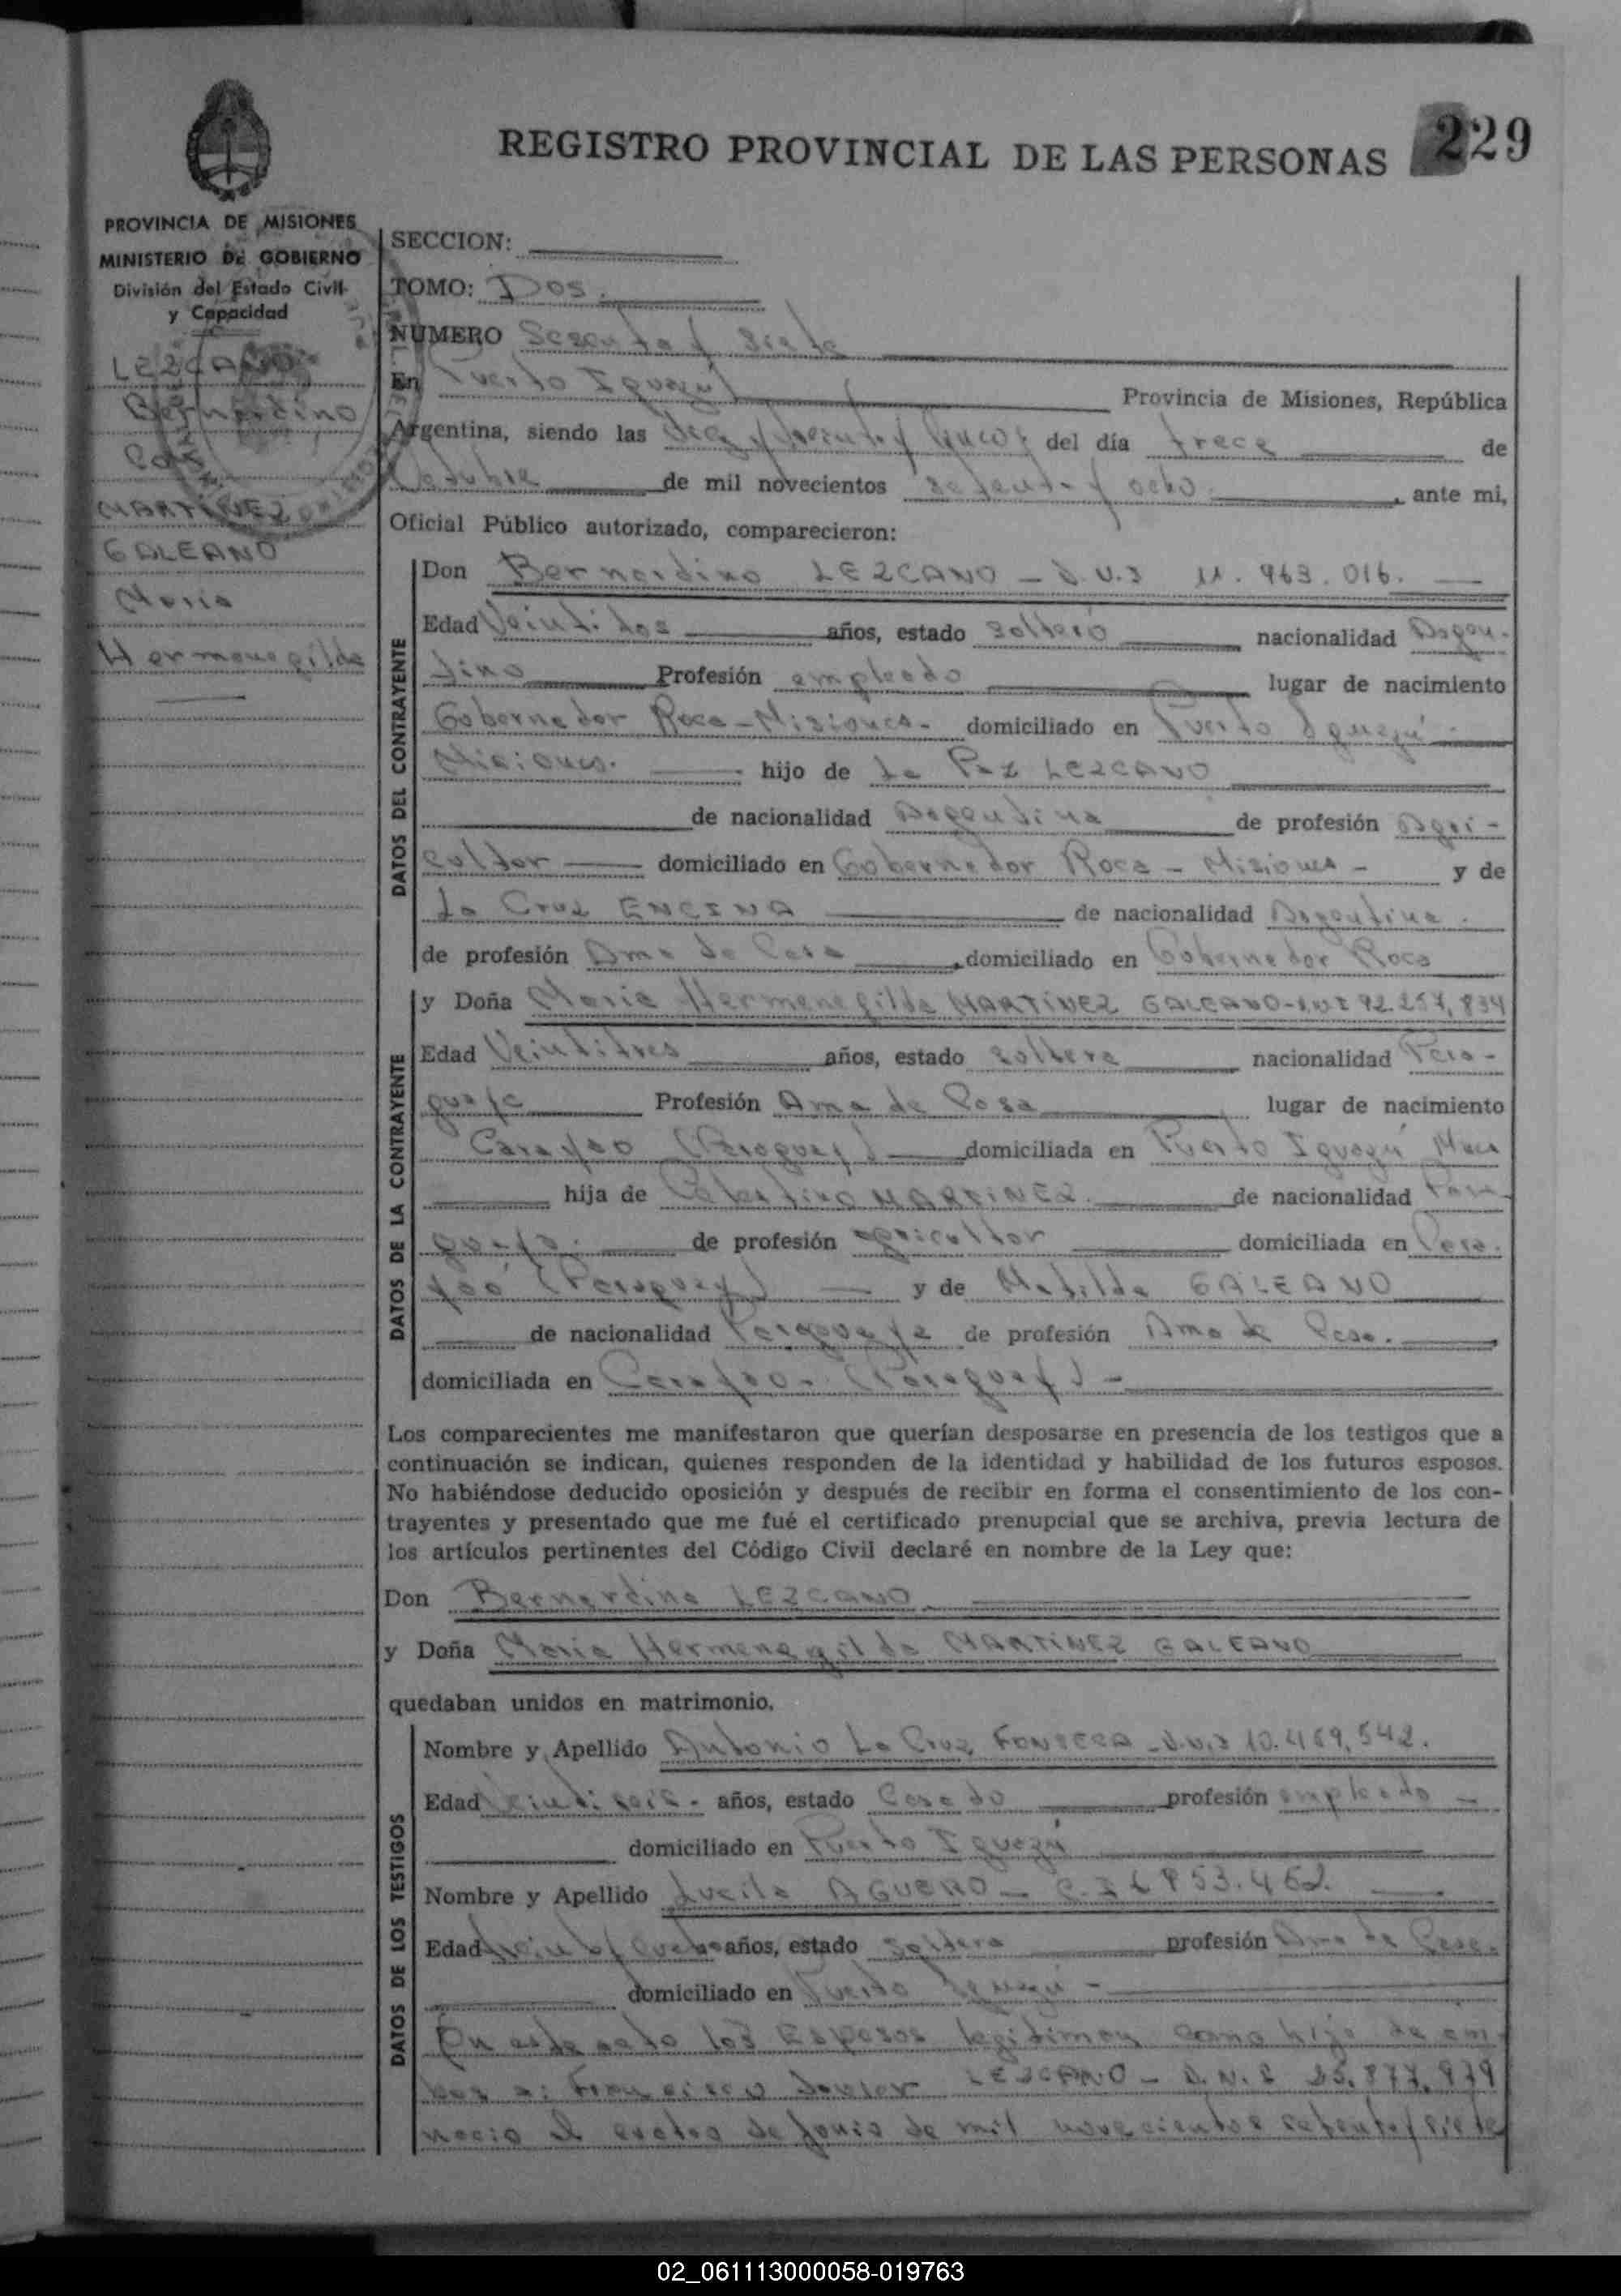 REGISTRO PROVINCIAL DE LAS PERSONAS 229
PROVINCIA DE MISIONES
MINISTERIO DE GOBIERNO
División del Estado Civil
y Capacidad
LEZCANO
Bernardino
Con
MARTINEZ
GALEANO
Maria
Hermenegilda
SECCION:
TOMO: Dos.
NUMERO Sesenta y Siete
En Puerto Iguazú Provincia de Misiones, República
Argentina, siendo las Diez y treinta y cinco del día trece de
Octubre de mil novecientos setenta y ocho. ante mi,
Oficial Público autorizado, comparecieron:
DATOS DEL CONTRAYENTE
Don Bernardino LEZCANO - D.N.I 11.963.016.
Edad Veintidos años, estado soltero nacionalidad Argen-
tino Profesión empleado lugar de nacimiento
Gobernador Roca - Misiones - domiciliado en Puerto Iguazú -
Misiones. hijo de La Paz LEZCANO
de nacionalidad Argentina de profesión Agri-
cultor domiciliado en Gobernador Roca - Misiones - y de
La Cruz ENCINA de nacionalidad Argentina.
de profesión Ama de Casa domiciliado en Gobernador Roca
DATOS DE LA CONTRAYENTE
y Doña Maria Hermenegilda MARTÍNEZ GALEANO - D.N.I 92.257.834
Edad Veintitres años, estado soltera nacionalidad Para-
guaya Profesión Ama de Casa lugar de nacimiento
Carayao (Paraguay) domiciliada en Puerto Iguazú
hija de Celestino MARTINEZ. de nacionalidad Para-
guaya. de profesión agricultor domiciliada en Cara-
yao (Paraguay) y de Matilde GALEANO
de nacionalidad Paraguaya de profesión Ama de Casa.
domiciliada en Carayao - (Paraguay) -
Los comparecientes me manifestaron que querían desposarse en presencia de los testigos que a
continuación se indican, quienes responden de la identidad y habilidad de los futuros esposos.
No habiéndose deducido oposición y después de recibir en forma el consentimiento de los con-
trayentes y presentado que me fué el certificado prenupcial que se archiva, previa lectura de
los artículos pertinentes del Código Civil declaré en nombre de la Ley que:
Don Bernardino LEZCANO
y Doña Maria Hermenegilda MARTÍNEZ GALEANO
quedaban unidos en matrimonio.
DATOS DE LOS TESTIGOS
Nombre y Apellido Antonio La Cruz FONSECA - D.N.I 10.469.542.
Edad Veintiseis - años, estado Casado profesión empleado -
domiciliado en Puerto Iguazú
Nombre y Apellido Lucila AGUERO - C.I
Edad años, estado soltera profesión Ama de Casa.
domiciliado en Puerto Iguazú -
En este acto los Esposos legitiman como hijo de am-
bos a: Francisco Javier LEZCANO - D.N.I 25.877.979
nacio el cuatro de Junio de mil novecientos setenta y siete
02_061113000058-019763